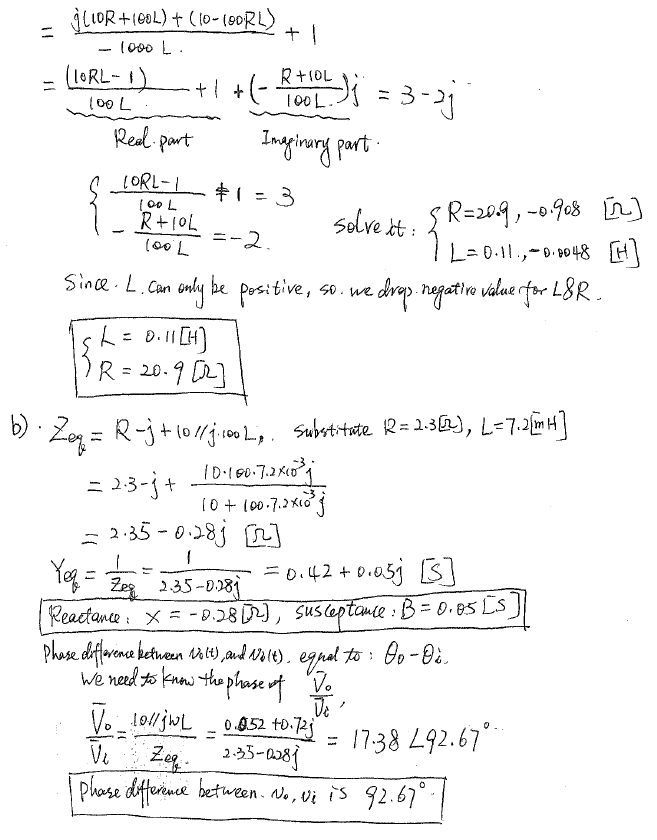 = j(10R+100L)+(10-100RL) / -1000L. + 1
= (10RL-1) / 100L + 1 + (- R+10L / 100L.)j = 3-2j
Real. part Imaginary part.
{ 10RL-1 / 100L + 1 = 3
- R+10L / 100L = -2.
Solve it: { R=20.9, -0.908 [Ω]
L=0.11., -0.0048 [H]
Since. L. can only be positive, so. we drop. negative value for L&R.
{ L = 0.11[H]
R = 20.9 [Ω]
b). Zeq = R-j+10//j.100L,. substitute R=2.3[Ω], L=7.2[mH]
= 2.3-j+ 10·100·7.2×10⁻³j / 10+100·7.2×10⁻³j
= 2.35-0.28j [Ω]
Yeq = 1/Zeq = 1 / 2.35-0.28j = 0.42+0.05j [S]
Reactance: X = -0.28[Ω], susceptance: B=0.05[S]
Phase difference between vo(t), and vo(t). equal to: θo-θi.
We need to know the phase of V̄o / V̄i,
V̄o / V̄i = 10//jωL / Zeq. = 0.052+0.72j / 2.35-0.28j = 17.38 ∠92.67°
Phase difference between. vo, vi is 92.67°.